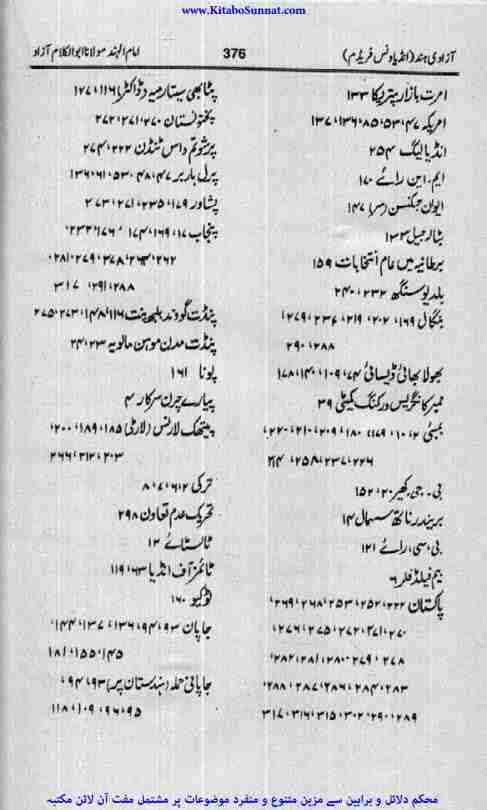 www.KitaboSunnat.com
آزادی ہند (انڈیا ونس فریڈم)
376
امام الہند مولانا ابوالکلام آزاد
امرت بازار پتریکا ۱۳۳
امریکہ ۴۷، ۵۳، ۸۵، ۱۳۶، ۱۳۷
انڈیا لیگ ۲۵۴
ایم۔ این رائے ۱۷۰
ایوان جنکنسن (سر) ۱۴۷
بٹالر جیل ۱۳۳
برطانیہ میں عام انتخابات ۱۵۹
بلدیو سنگھ ۲۳۲، ۲۴۰
بنگال ۱۶۹، ۲۰۲، ۲۱۹، ۲۳۶، ۲۷۹،
۲۸۸، ۲۹۰
بھولا بھائی ڈیسائی ۷۴، ۱۰۹، ۱۴۰، ۱۷۸
ممبر کانگریس ورکنگ کمیٹی ۳۹
بمبئی ۲، ۱۰، ۱۷۹، ۱۸۰، ۲۰۹، ۲۱۰، ۲۲۰،
۲۲۶، ۲۳۷، ۲۵۸،
بی۔ جی۔ کھیر ۲۰، ۱۵۲
بریندر ناتھ سسمال ۱۴
بی، سی، رائے ۱۲۱
بیم فیلڈ فلر ۶
پاکستان ۲۲۲، ۲۵۲، ۲۵۳، ۲۶۸، ۲۶۹،
۲۷۰، ۲۷۱، ۲۷۲، ۲۷۵، ۲۷۶،
۲۷۸، ۲۷۹، ۲۸۰، ۲۸۱، ۲۸۲،
۲۸۳، ۲۸۴، ۲۸۶، ۲۸۷، ۲۸۸،
۲۸۹، ۲۹۰، ۳۰۲، ۳۱۵، ۳۱۶، ۳۱۷
پٹابھی سیتارمیہ (ڈاکٹر) ۱۱۶، ۱۲۷
پختونستان ۲۷۰، ۲۷۱، ۲۷۲
پرشوتم داس ٹنڈن ۲۲۲، ۲۷۴
پرل ہاربر ۴۷، ۴۸، ۵۳، ۶۱، ۱۳۶
پشاور ۱۷۹، ۲۳۵، ۲۷۱، ۲۷۳
پنجاب ۱۷، ۱۶۹، ۱۷۴، ۱۷۶، ۲۳۲،
۲۶۲، ۲۷۸، ۲۷۹، ۲۸۱،
۲۸۸، ۲۹۱، ۳۱۷
پنڈت گووند بلبھ پنت ۱۱۶، ۱۴۸، ۲۷۳، ۲۷۵
پنڈت مدن موہن مالویہ ۲۳، ۲۴
پونا ۱۶۱
پیارے چرن سرکار ۴
پیتھک لارنس (لارڈ) ۱۸۵، ۱۸۹، ۲۰۰،
۲۰۳، ۲۱۲، ۲۶۶
ترکی ۲، ۶، ۷، ۸
تحریک عدم تعاون ۲۹۸
ٹالسٹائے ۱۲
ٹائمز آف انڈیا ۶۳، ۱۱۹
ٹوکیو ۱۶۰
جاپان ۹۳، ۹۴، ۱۳۶، ۱۳۷، ۱۴۴،
۱۴۵، ۱۵۵، ۱۸۱
جاپانی حملہ (ہندستان پر) ۹۳، ۹۴،
۹۵، ۹۶، ۱۰۹، ۱۱۸
محکم دلائل و براہین سے مزین متنوع و منفرد موضوعات پر مشتمل مفت آن لائن مکتبہ